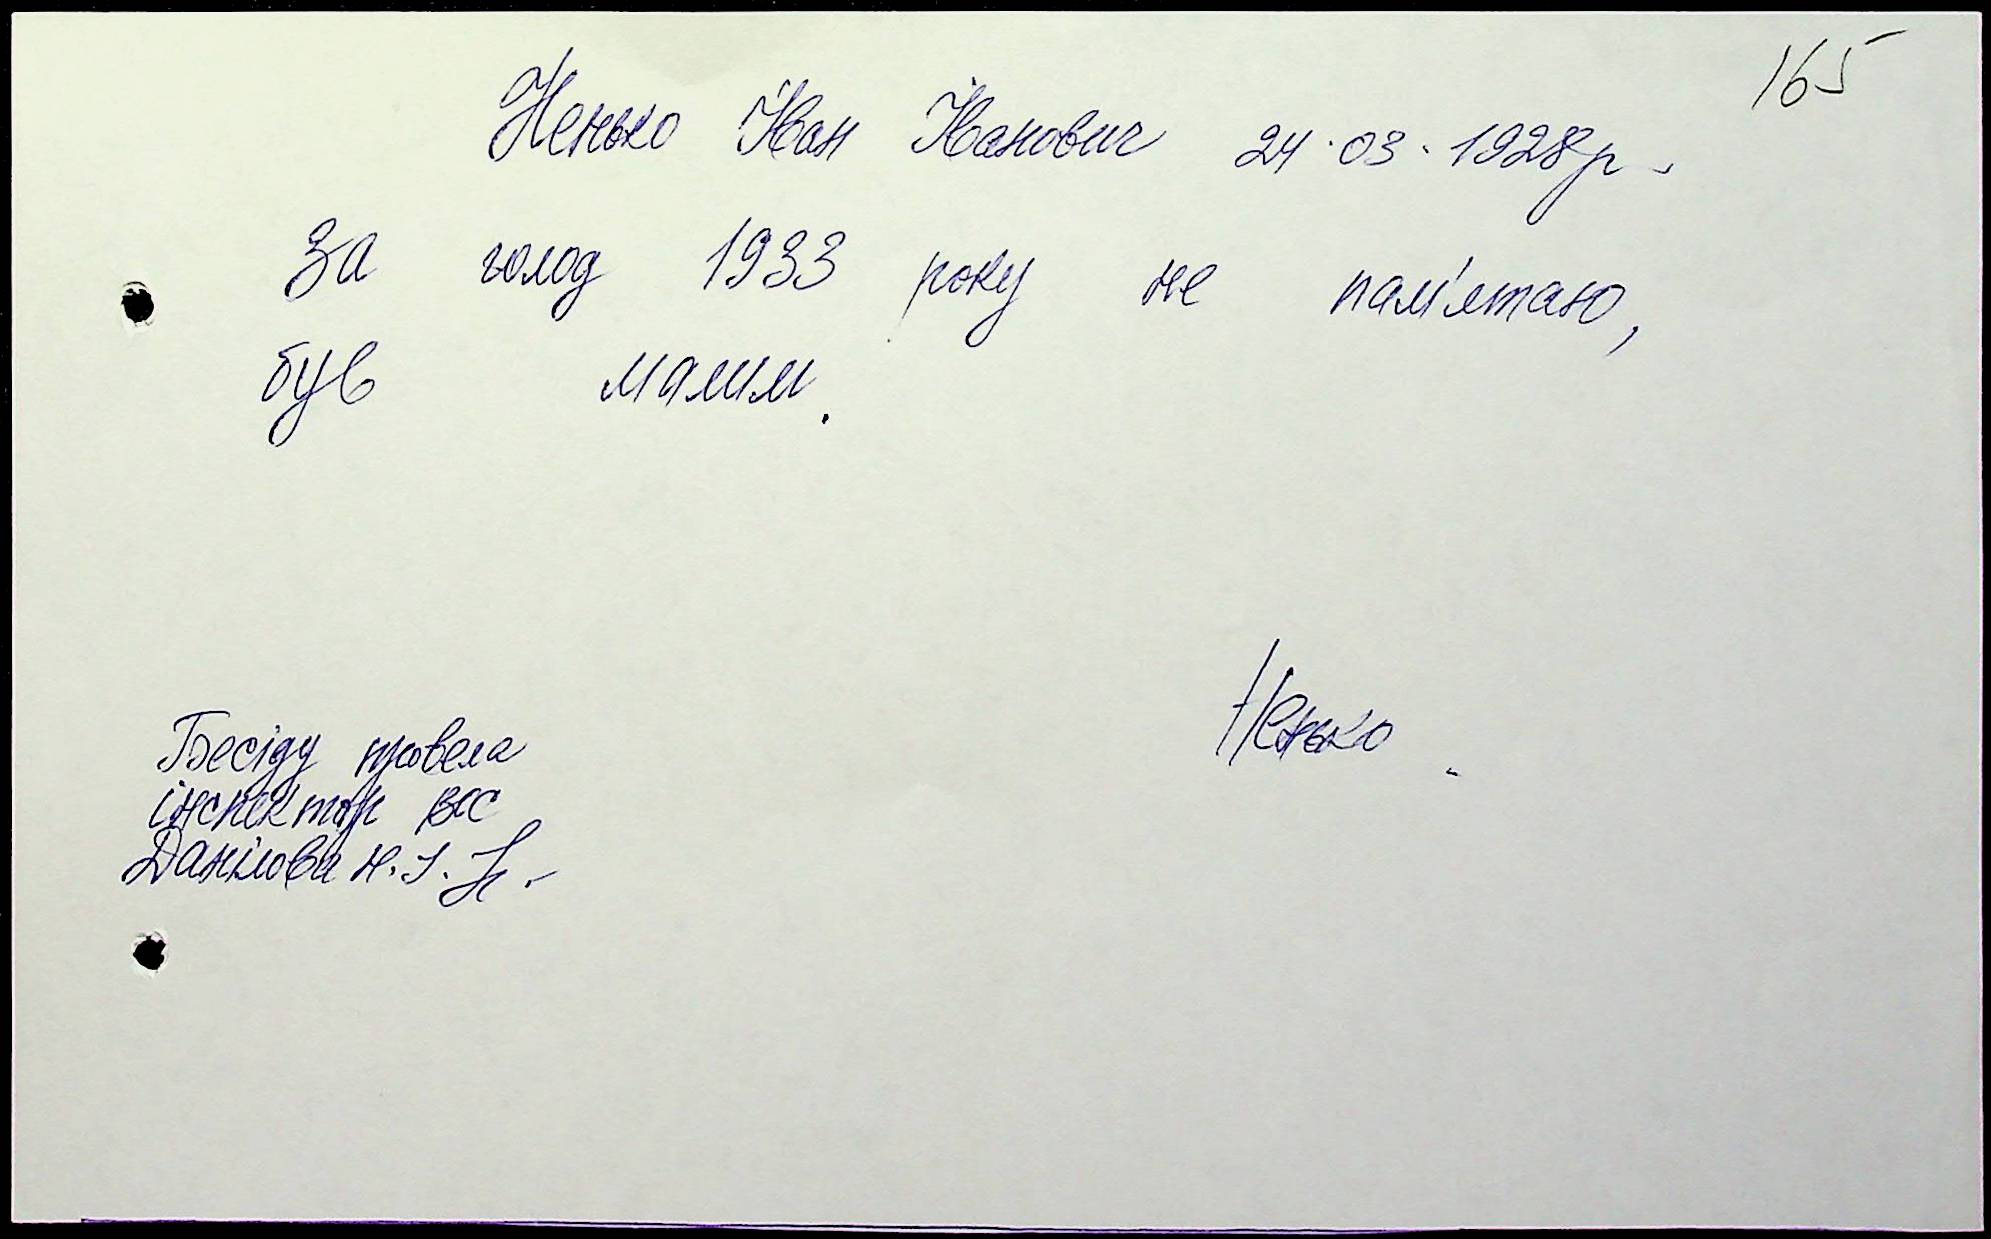 165
Ненько Іван Іванович 24.03.1928р.
За голод 1933 року не пам'ятаю,
був малим.
Ненько.
Бесіду провела
інспектор ВСС
Данілова Н.І.